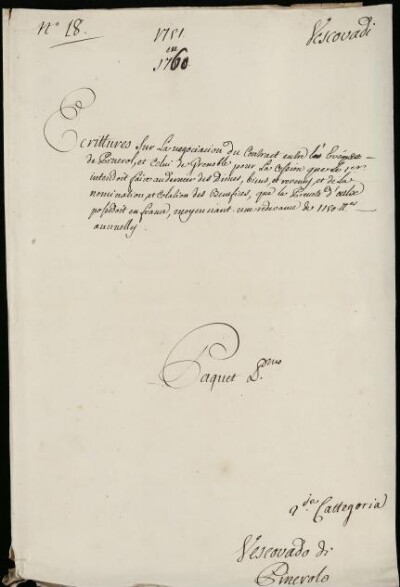 N.° 18.
1751.
en
1760
Vescovadi
Ecrittures sur La negociacion du Contract entre les Evêques
de Pinerol, et Celui de Grenoble pour La Cession que le p.er
intendoit faire au dernier des Dimes, biens, et revenus, et de La
nomination, et Colation des Benefices, que la Prevôté d'oulx
possedoit en france, moyennant une redevance de 1150 ll.es
annuelles
Paquet 8.mo
2.da Cattegoria
Vescovado di
Pinerolo